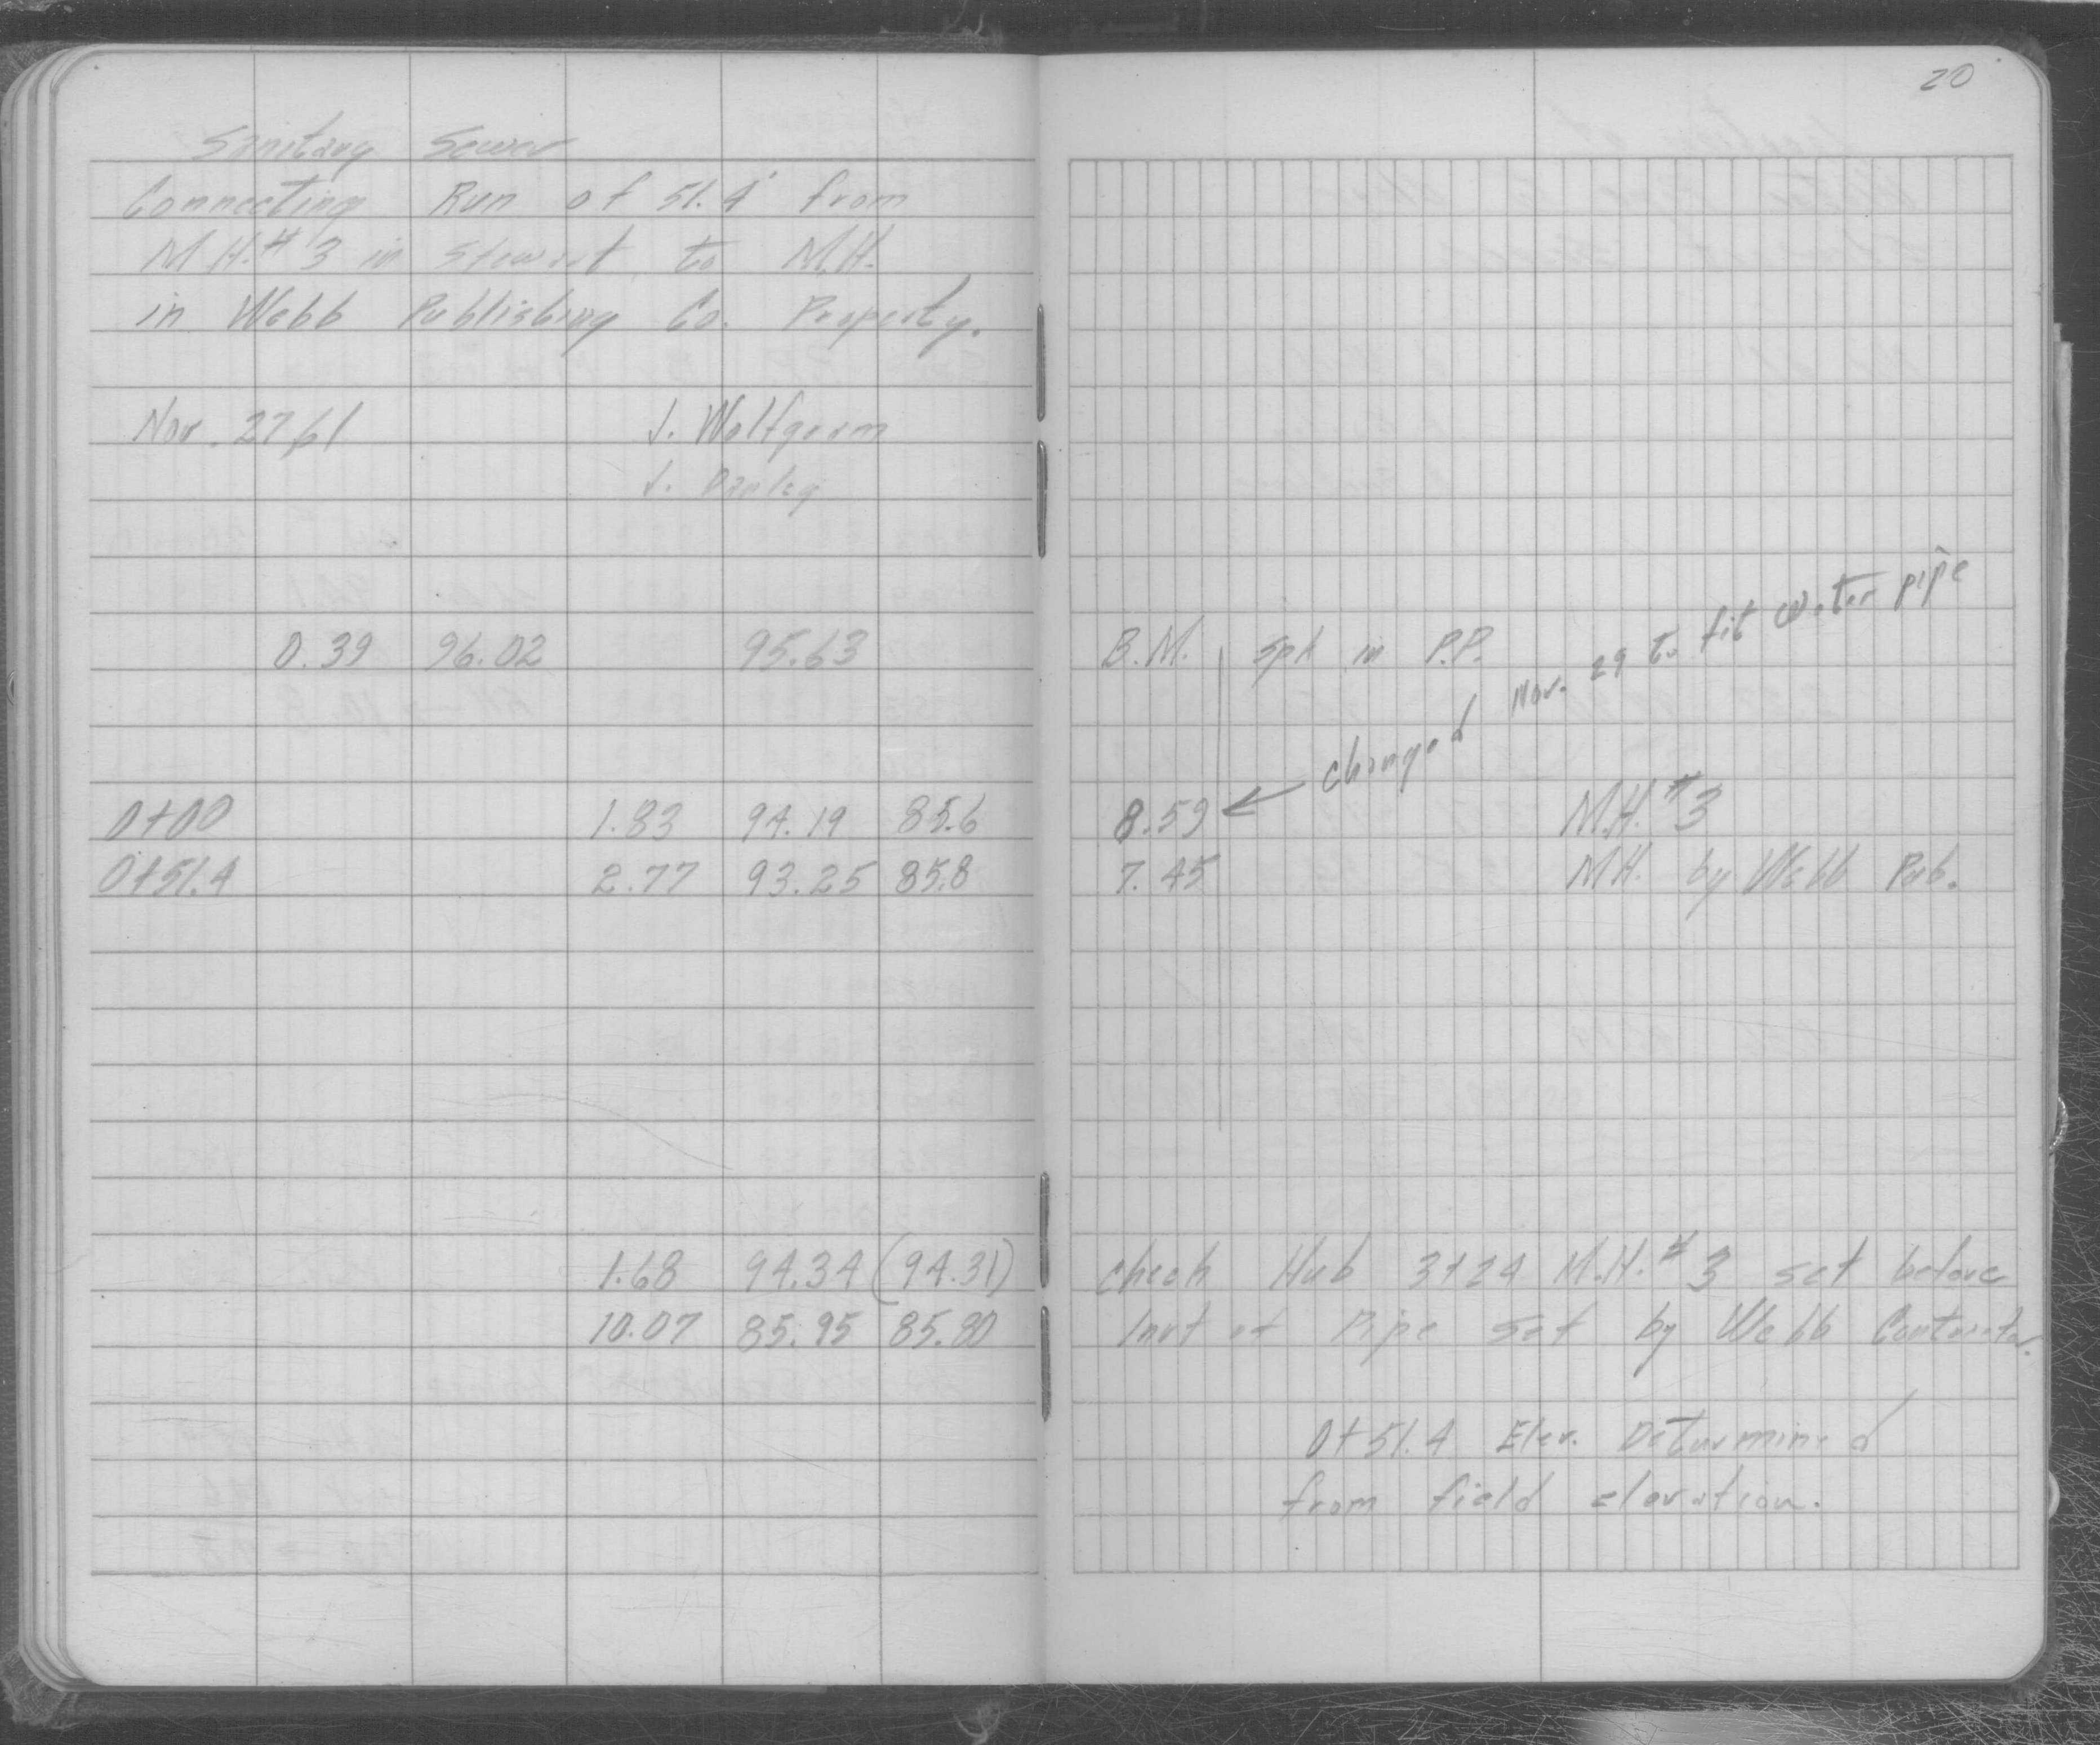 20
Sanitary Sewer
Connecting Run of 51.4' from
M.H.#3 in Stewart to M.H.
in Webb Publishing Co. Property.
Nov. 27 61 J. Wolfgram
J. Danley
0.39 96.02 95.63 B.M. spk in P.P.
changed Nov. 29 to fit water pipe
0+00 1.83 94.19 85.6 8.59 M.H.#3
0+51.4 2.77 93.25 85.8 7.45 M.H. by Webb Pub.
1.68 94.34 (94.31) check Hub 3+24 M.H.#3 set before
10.07 85.95 85.80 Invt of Pipe set by Webb Contractor.
0+51.4 Elev. Determined
from field elevation.